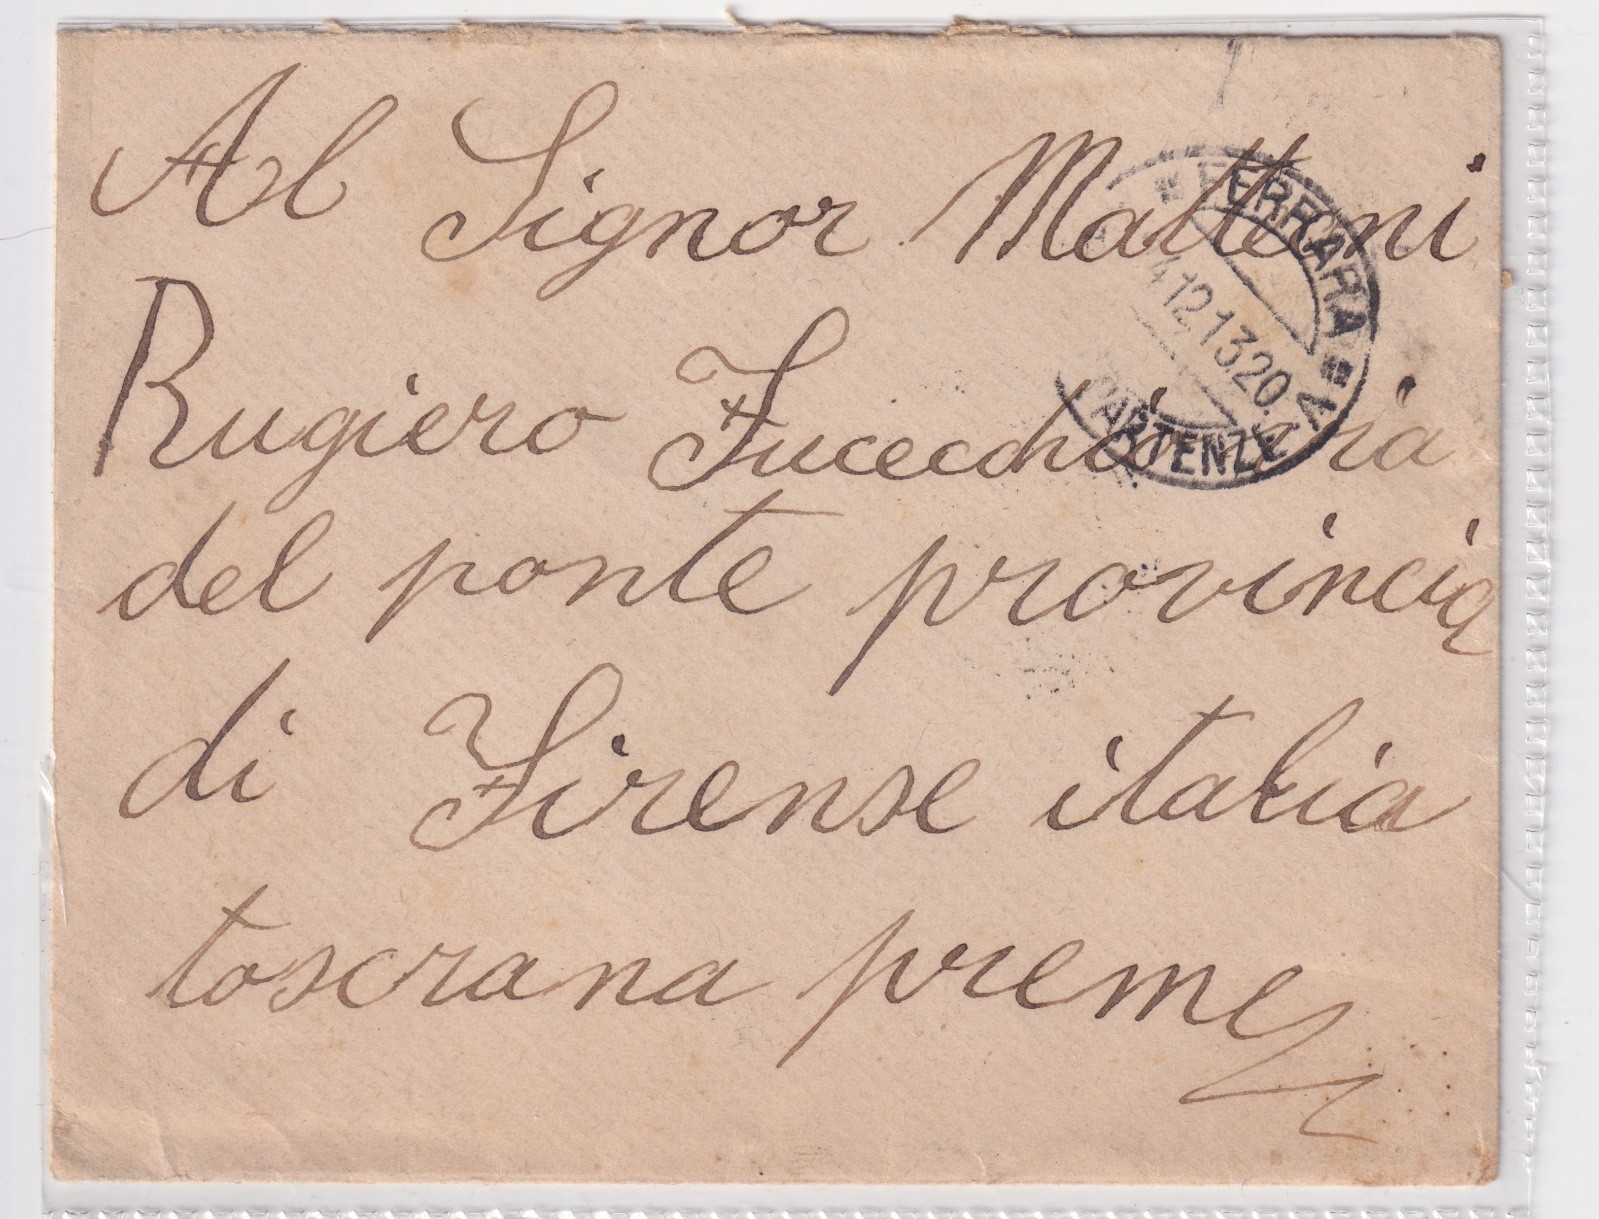 Al Signor Matteoni
Rugiero Fucecchio via
del ponte provincia
di Firense italia
toscrana preme
FERRARA
12.13.20.
PARTENZE A